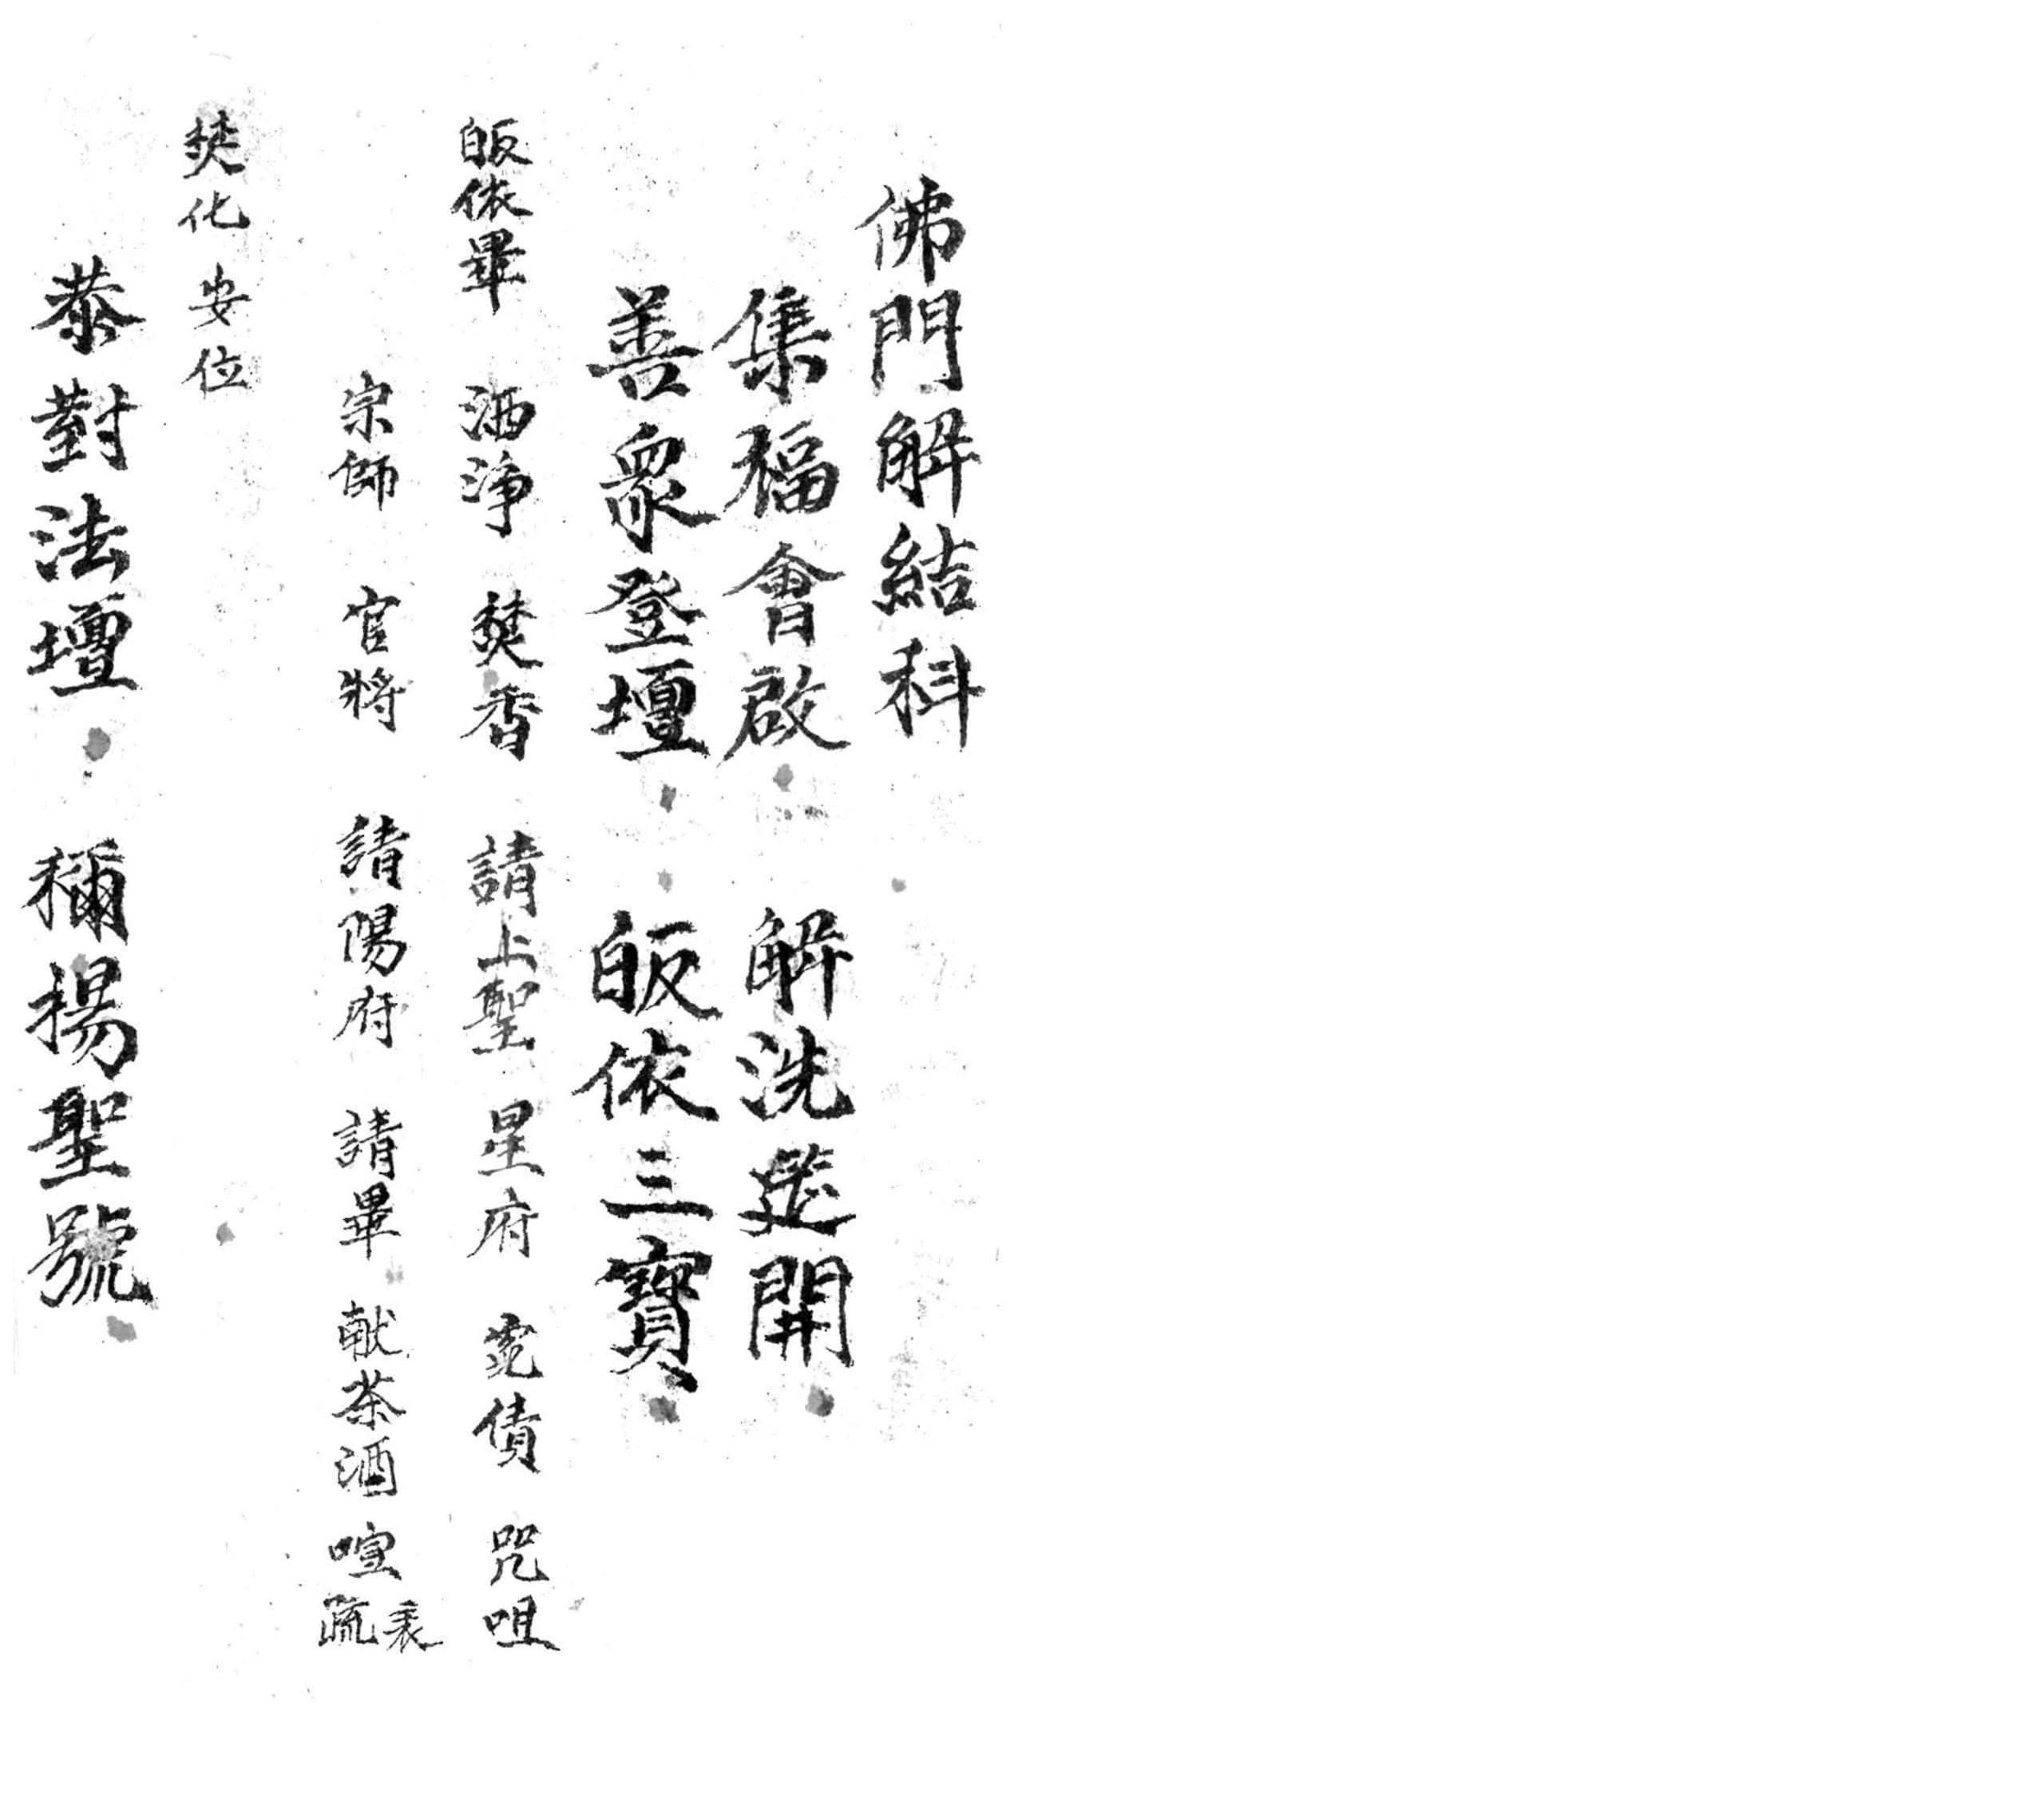 佛門解結科
集福會啟 解洗筵開
善眾登壇 皈依三寶
皈依畢 洒淨 焚香 請上聖 星府 冤債 咒咀
宗師 官將 請陽府 請畢 献茶酒 喧表疏
焚化 安位
恭對法壇 稱揚聖號